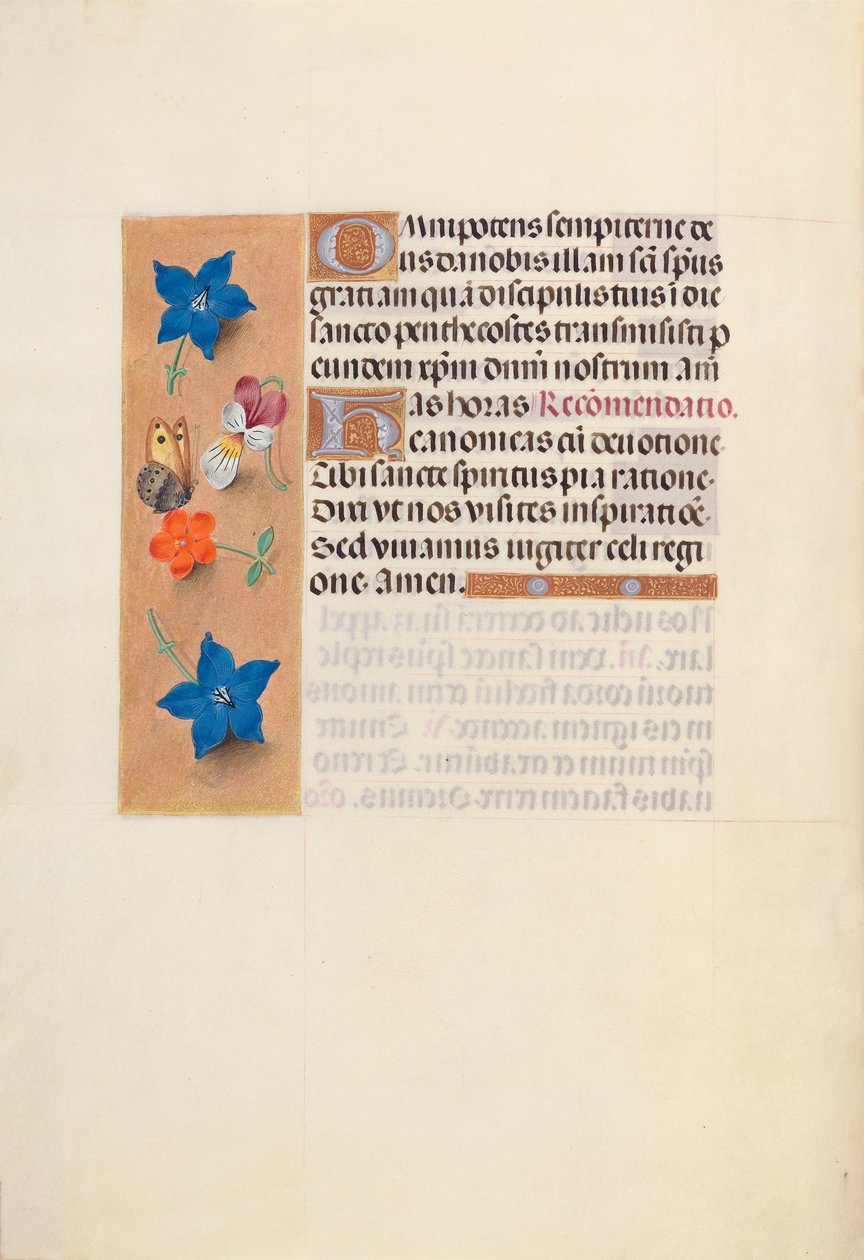 OMnipotens sempiterne de
us da nobis illam sc̄i sp̄us
gratiam quā discipulis tuis ī die
sancto penthecostes transmisisti p
eundem xp̄m dnm̄ nostrum am̄
Has horas Recōmendatio.
canonicas cū deuotione
Tibi sancte spiritus pia ratione.
Dixi vt nos visites inspiratiōe.
Sed viuamus iugiter celi regi
one. Amen.